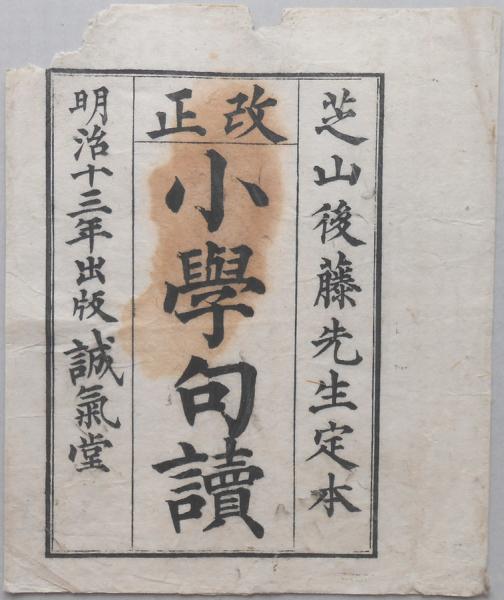 芝山後藤先生定本
改正
小學句讀
明治十三年出版 誠氣堂